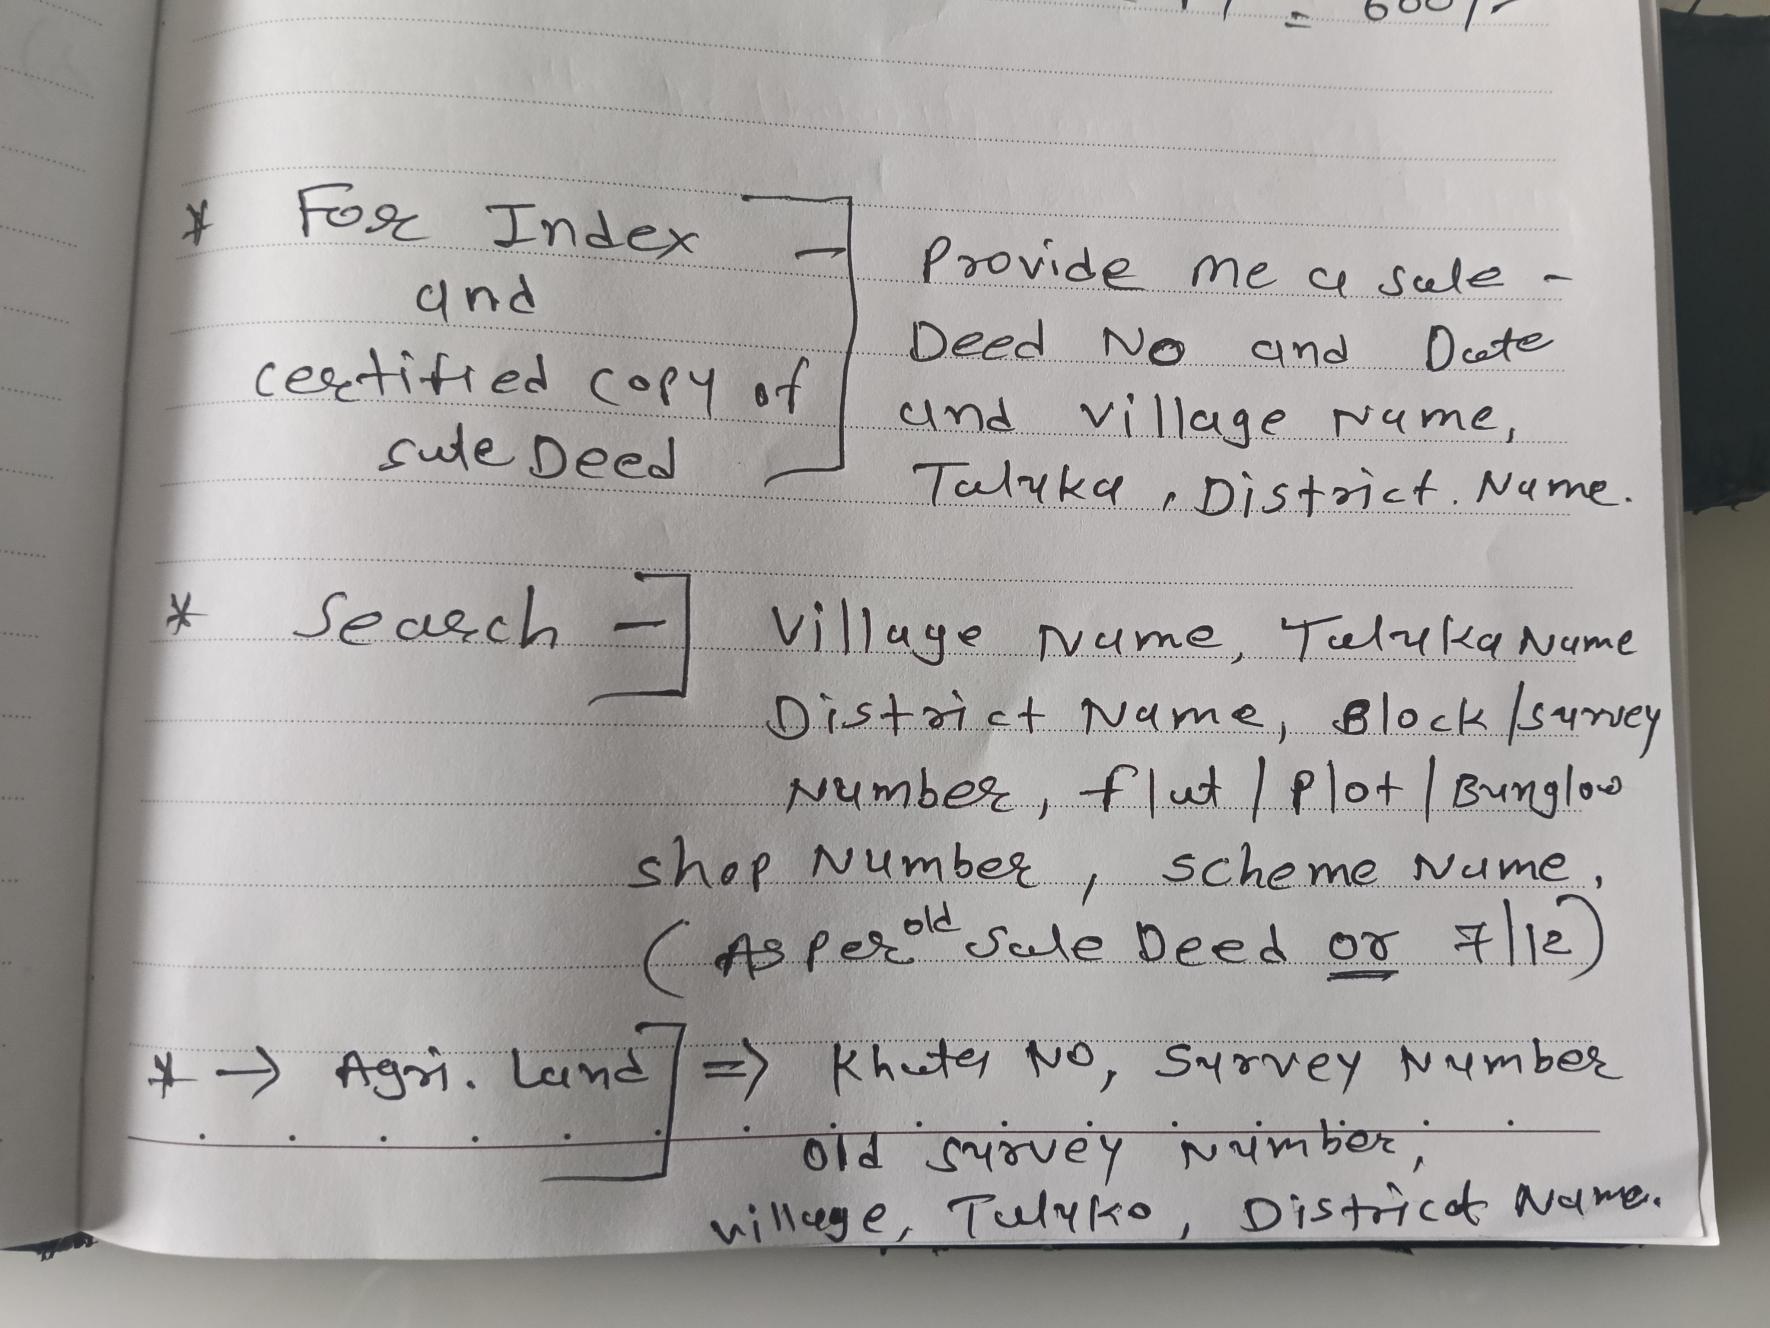 = 600/-
* For Index - Provide me a sale -
and Deed No and Date
certified copy of and village Name,
sale Deed Taluka, District. Name.
* Search - Village Name, Taluka Name
District Name, Block/survey
Number, flat / Plot / Bunglow
shop Number, scheme Name,
(As per old Sale Deed or 7/12)
* → Agri. Land => Khata No, Survey Number
old survey Number,
village, Taluko, District Name.